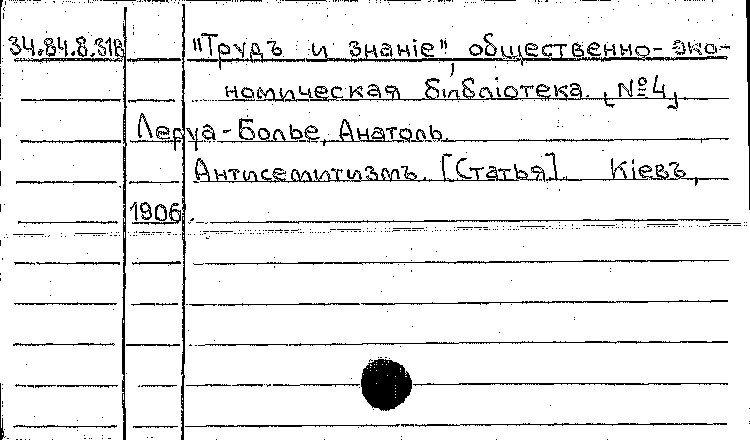 34.84.8.318 "Трудъ и знанiе", общественно-эко-
номическая бiблiотека. [№4].
Леруа-Болье, Анатоль.
Антисемитизмъ. [Статья]. Кiевъ,
1906.